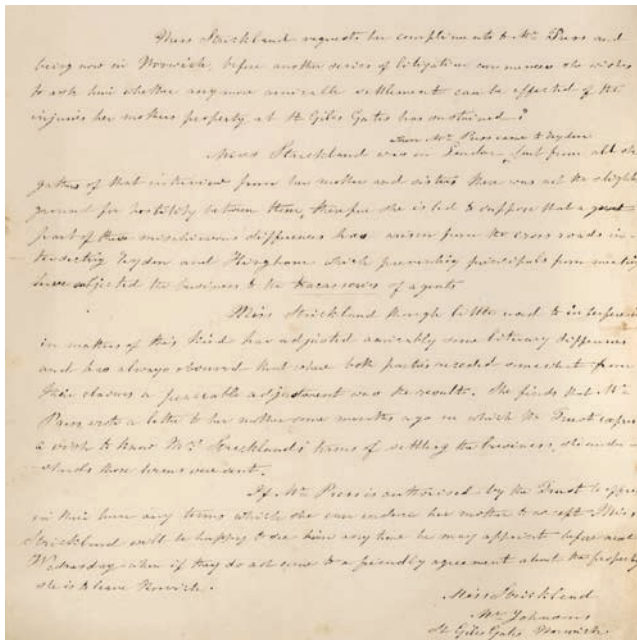 Miss Strickland requests her compliments to Mr. Press and
being now in Norwich, before another series of litigation commences she wishes
to ask him whether any more amicable settlement can be effected of the
injuries her mothers property at St Giles Gates has sustained?
when Mr. Press came to Reydon
Miss Strickland was in London, but from all she
gathers of that interview from her mother and sisters there was not the slight
ground for hostility between them, therefore she is led to suppose that a great
part of these mischievous differences has arisen from the cross roads in-
tersecting Reydon and Hingham which preventing principals from meeting
have subjected the business to the tracasseries of agents
Miss Strickland though little used to interference
in matters of this kind has adjusted amicably some literary differences
and has always observed that where both parties receded somewhat from
their claims a peaceable adjustment was the result. She finds that Mr.
Press wrote a letter to her mother some months ago in which the Trust expres
a wish to know Mrs. Strickland's terms of settling the business, she under-
stands those terms were sent.
If Mr. Press is authorised by the Trust to
in their turn any terms which she can induce her mother to accept Miss
Strickland will be happy to see him any hour he may appoint before next
Wednesday when if they do not come to a friendly agreement about the property
she is to leave Norwich.
Miss Strickland
Mr.
St Giles Gates Norwich